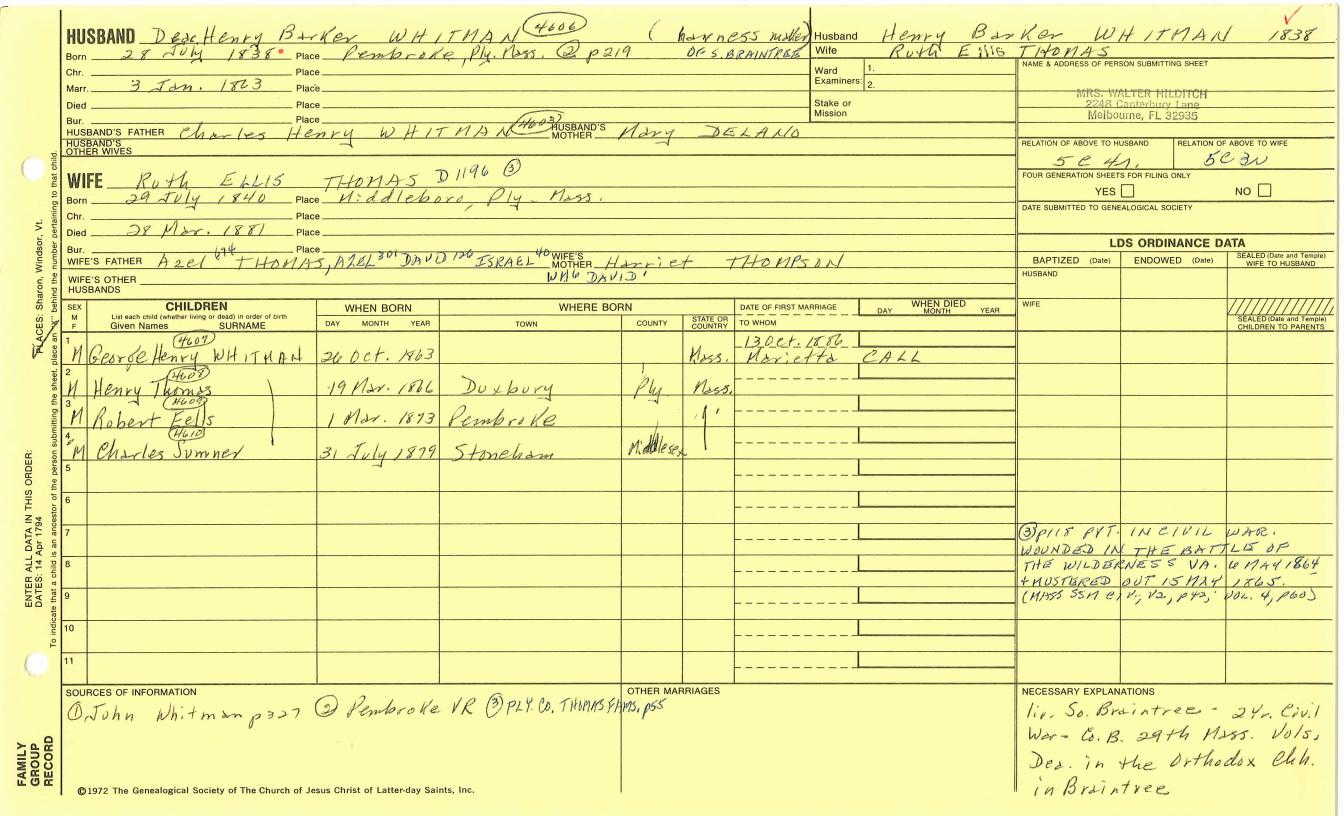 HUSBAND Deac Henry Barker WHITMAN 4606 (harness maker)
Born 28 July 1838 Place Pembroke, Ply. Mass. ② p219 OF S. BRAINTREE
Chr. Place
Marr. 3 Jan. 1863 Place
Died Place
Bur. Place
HUSBAND'S FATHER Charles Henry WHITMAN 4603 HUSBAND'S MOTHER Mary DELANO
HUSBAND'S OTHER WIVES
Husband Henry Barker WHITMAN 1838
Wife Ruth Ellis THOMAS
Ward Examiners: 1.
2.
Stake or Mission
NAME & ADDRESS OF PERSON SUBMITTING SHEET
MRS. WALTER HILDITCH
2248 Canterbury Lane
Melbourne, FL 32935
RELATION OF ABOVE TO HUSBAND RELATION OF ABOVE TO WIFE
5C 4r. 5C 3r
FOUR GENERATION SHEETS FOR FILING ONLY
YES NO
DATE SUBMITTED TO GENEALOGICAL SOCIETY
WIFE Ruth ELLIS THOMAS D1196 ③
Born 29 July 1840 Place Middleboro, Ply. Mass.
Chr. Place
Died 28 Mar. 1881 Place
Bur. Place
WIFE'S FATHER Azel 674 THOMAS, AZEL 301 DAVID 120 ISRAEL 40 WIFE'S MOTHER Harriet THOMPSON
WIFE'S OTHER HUSBANDS DAVID
LDS ORDINANCE DATA
BAPTIZED (Date) ENDOWED (Date) SEALED (Date and Temple) WIFE TO HUSBAND
HUSBAND
WIFE
SEALED (Date and Temple) CHILDREN TO PARENTS
SEX M F CHILDREN List each child (whether living or dead) in order of birth Given Names SURNAME WHEN BORN DAY MONTH YEAR WHERE BORN TOWN COUNTY STATE OR COUNTRY DATE OF FIRST MARRIAGE TO WHOM WHEN DIED DAY MONTH YEAR
1 M George Henry WHITMAN 4607 26 Oct. 1863 Mass. 13 Oct. 1886 Marietta CALL
2 M Henry Thomas 4608 19 Mar. 1866 Duxbury Ply Mass.
3 M Robert Eells 4609 1 Mar. 1873 Pembroke " "
4 M Charles Sumner 4610 31 July 1879 Stoneham Middlesex
5
6
7
8
9
10
11
③ p118 PVT. IN CIVIL WAR.
WOUNDED IN THE BATTLE OF
THE WILDERNESS VA. 6 MAY 1864
+ MUSTERED OUT 15 MAY 1865.
(MASS SSM CIV, V2, p42; VOL. 4, p60)
SOURCES OF INFORMATION
① John Whitman p327 ② Pembroke VR ③ PLY. CO. THOMAS FAMS, p55
OTHER MARRIAGES
NECESSARY EXPLANATIONS
liv. So. Braintree - 2 yr. Civil
War - Co. B. 29th Mass. Vols,
Dea. in the Orthodox Chh.
in Braintree
©1972 The Genealogical Society of The Church of Jesus Christ of Latter-day Saints, Inc.
FAMILY GROUP RECORD
ENTER ALL DATA IN THIS ORDER:
DATES: 14 Apr 1794
PLACES: Sharon, Windsor, Vt.
To indicate that a child is an ancestor of the person submitting the sheet, place an "X" behind the number pertaining to that child.